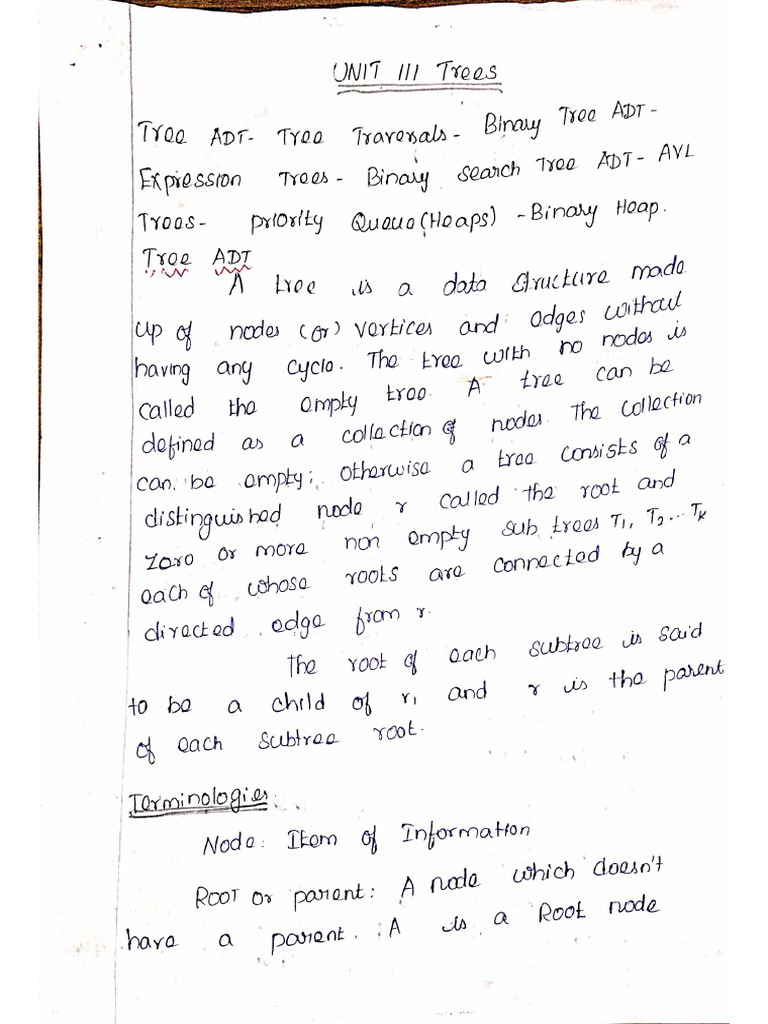 UNIT III Trees
Tree ADT- Tree Traversals- Binary Tree ADT-
Expression Trees- Binary Search Tree ADT- AVL
Trees- Priority Queue(Heaps) -Binary Heap.
Tree ADT
A tree is a data structure made
up of nodes (or) vertices and edges without
having any cycle. The tree with no nodes is
called the empty tree. A tree can be
defined as a collection of nodes. The collection
can be empty; otherwise a tree consists of a
distinguished node r called the root and
zero or more non empty sub trees T1, T2... Tk
each of whose roots are connected by a
directed edge from r.
The root of each subtree is said
to be a child of r, and r is the parent
of each subtree root.
Terminologies:
Node: Item of Information
ROOT or parent: A node which doesn't
have a parent. A is a Root node